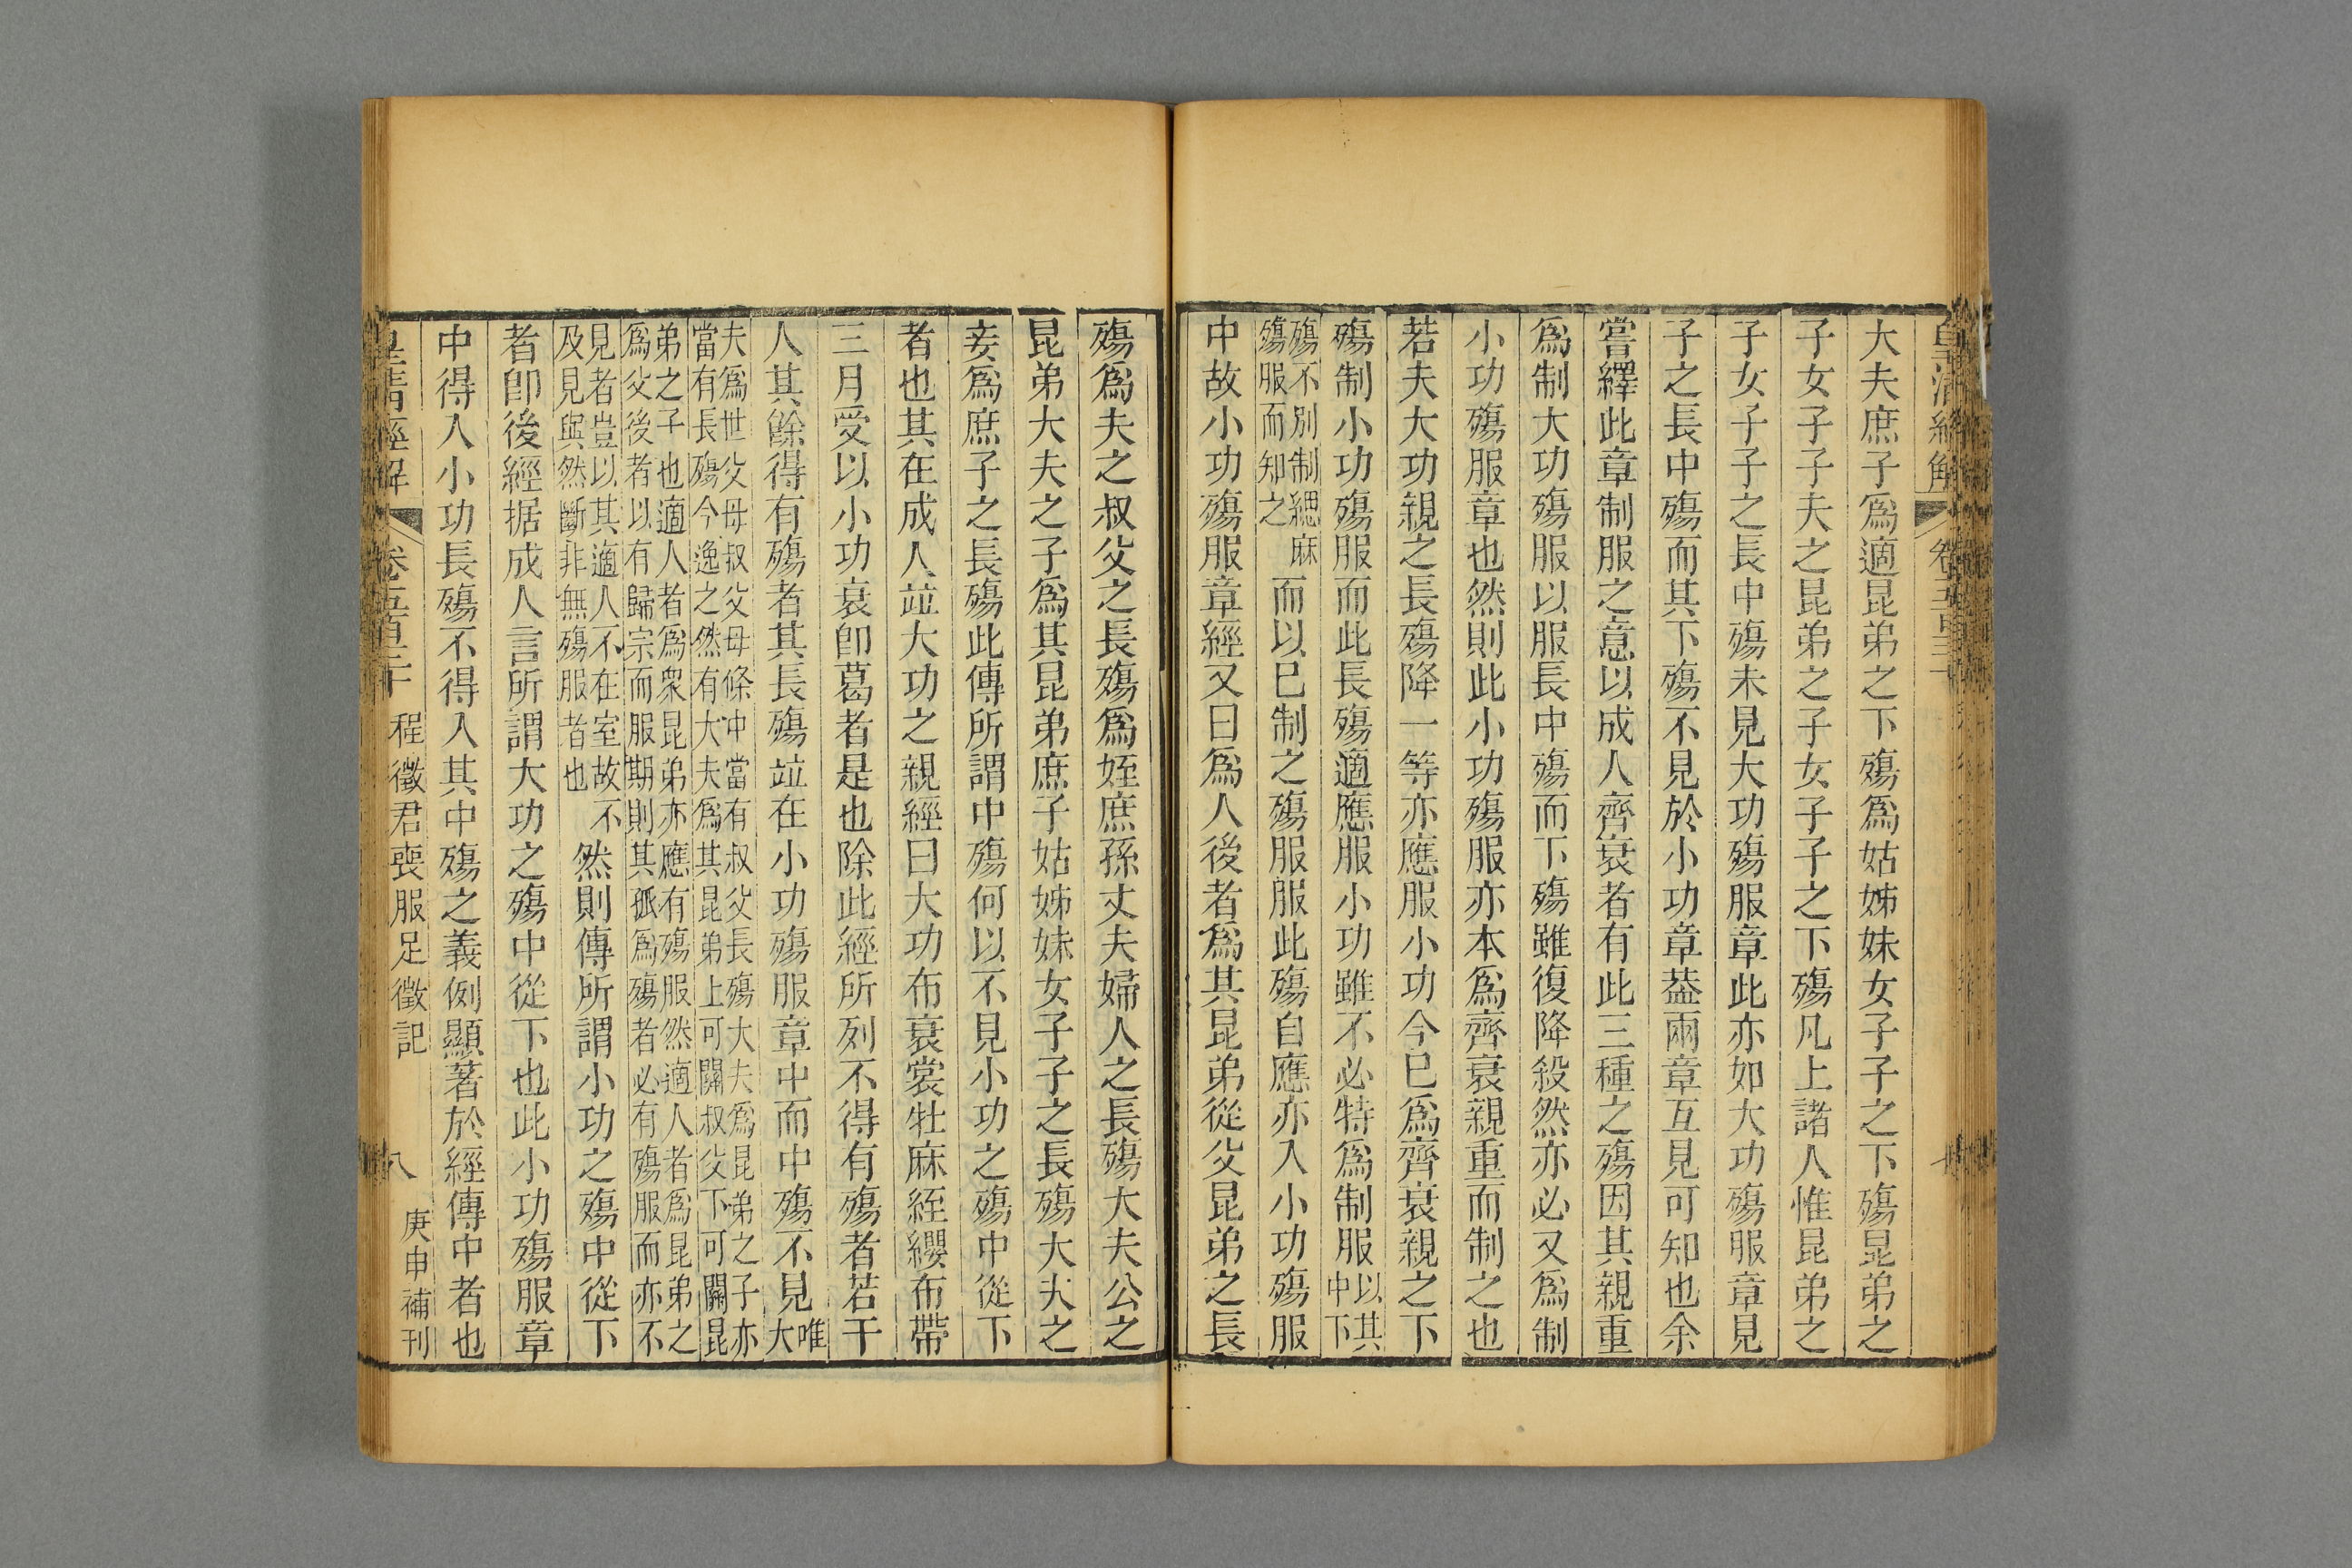 皇清經解 卷五百三十
大夫庶子爲適昆弟之下殤爲姑姊妹女子子之下殤昆弟之
子女子子夫之昆弟之子女子子之下殤凡上諸人惟昆弟之
子女子子之長中殤未見大功殤服章此亦如大功殤服章見
子之長中殤而其下殤不見於小功章葢兩章互見可知也余
嘗繹此章制服之意以成人齊衰者有此三種之殤因其親重
爲制大功殤服以服長中殤而下殤雖復降殺然亦必又爲制
小功殤服章也然則此小功殤服亦本爲齊衰親重而制之也
若夫大功親之長殤降一等亦應服小功今已爲齊衰親之下
殤制小功殤服而此長殤適應服小功雖不必特爲制服以其中下
殤不別制緦麻殤服而知之而以已制之殤服服此殤自應亦入小功殤服
中故小功殤服章經又曰爲人後者爲其昆弟從父昆弟之長
殤爲夫之叔父之長殤爲姪庶孫丈夫婦人之長殤大夫公之
昆弟大夫之子爲其昆弟庶子姑姊妹女子子之長殤大夫之
妾爲庶子之長殤此傳所謂中殤何以不見小功之殤中從下
者也其在成人竝大功之親經曰大功布衰裳牡麻絰纓布帶
三月受以小功衰卽葛者是也除此經所列不得有殤者若干
人其餘得有殤者其長殤竝在小功殤服章中而中殤不見唯大
夫爲世父母叔父母條中當有叔父長殤大夫爲昆弟之子亦
當有長殤今逸之然有大夫爲其昆弟上可關叔父下可關昆
弟之子也適人者爲衆昆弟亦應有殤服然適人者爲昆弟之
爲父後者以有歸宗而服期則其孤爲殤者必有殤服而亦不
見者豈以其適人不在室故不
及見與然斷非無殤服者也然則傳所謂小功之殤中從下
者卽後經据成人言所謂大功之殤中從下也此小功殤服章
中得入小功長殤不得入其中殤之義例顯著於經傳中者也
皇清經解 卷五百三十 程徵君喪服足徵記 八 庚申補刊